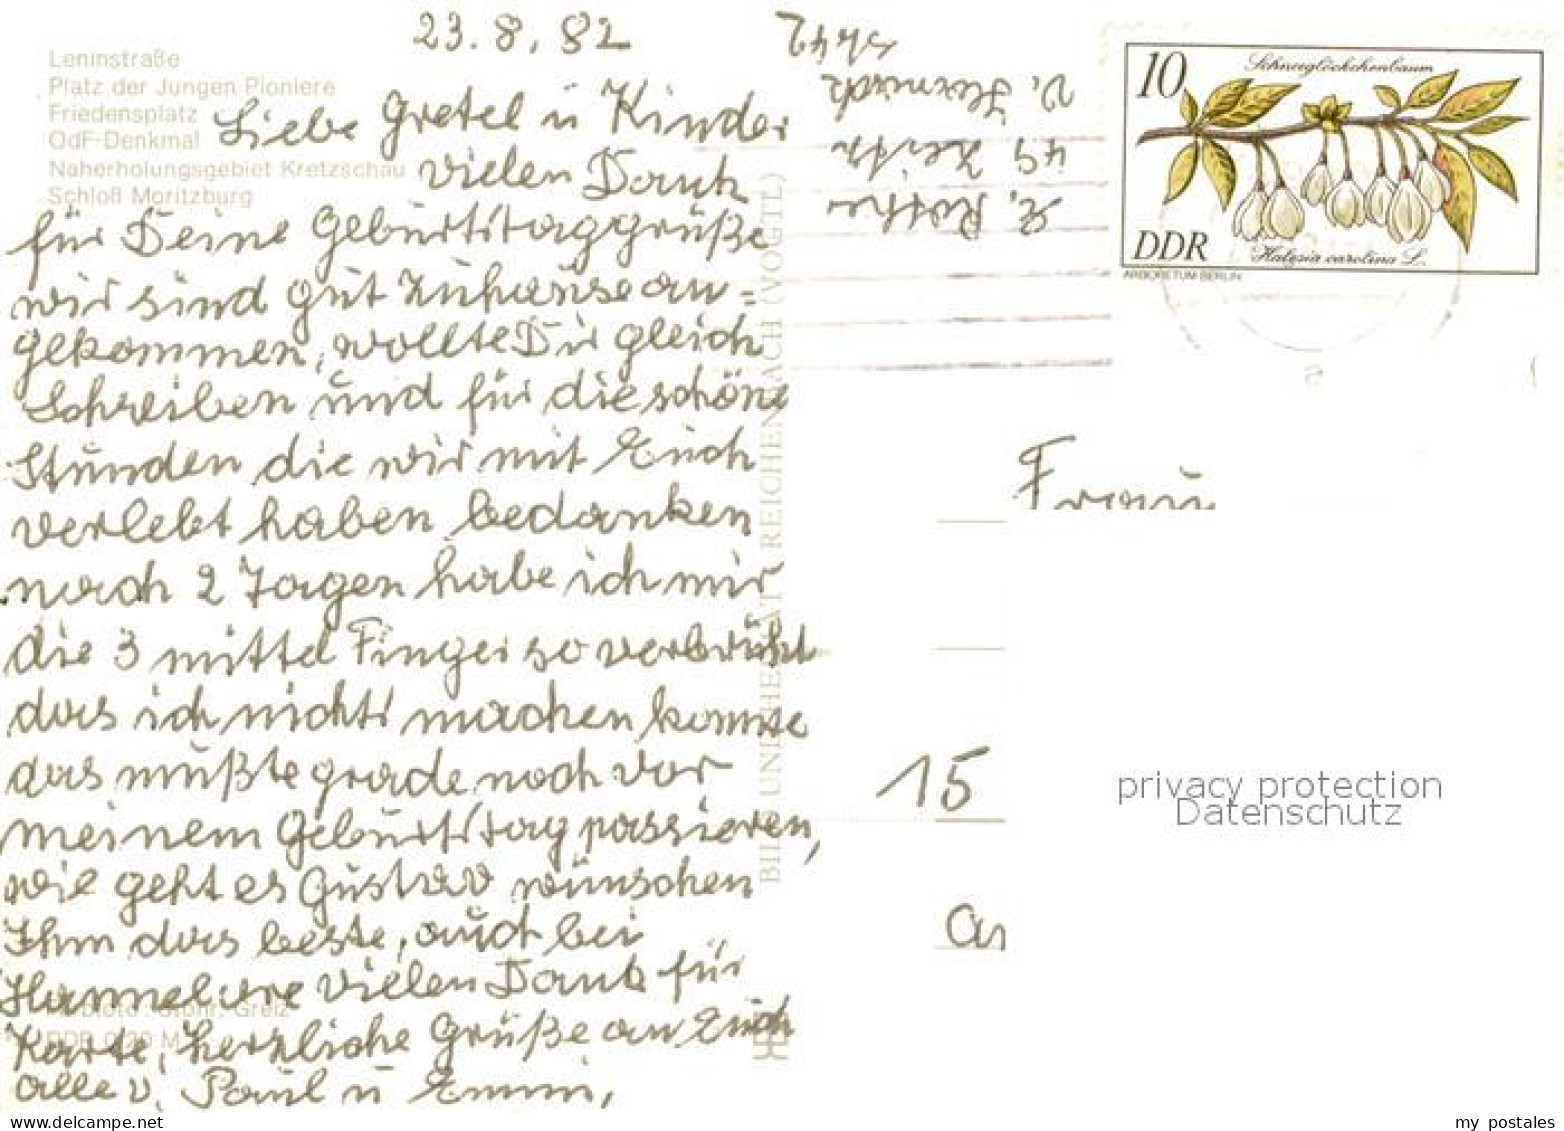 23.8.82
Leninstraße
Platz der Jungen Pioniere
Friedensplatz
OdF-Denkmal
Naherholungsgebiet Kretzschau
Schloß Moritzburg
Liebe Gretel u Kinder
vielen Dank
für Deine Geburtstaggrüße
wir sind gut zuhause an=
gekommen, wollte Dir gleich
Schreiben und für die schöne
Stunden die wir mit Euch
verlebt haben bedanken
nach 2 Tagen habe ich mir
die 3 mittel Finger so verbrüht
das ich nichts machen konnte
das mußte grade noch vor
meinem Geburtstag passieren,
wie geht es Gustav wünschen
Ihm das beste, auch bei
Hannelore vielen Dank für
Karte, herzliche Grüße an Euch
alle v. Paul u Emmi,
Greiz
BILD UND HEIMAT REICHENBACH (VOGTL)
E. Rothe
49 Zeitz
10
Schneeglöckchenbaum
DDR
Halesia carolina L.
ARBORETUM BERLIN
Frau
15
privacy protection
Datenschutz
www.delcampe.net
my_postales